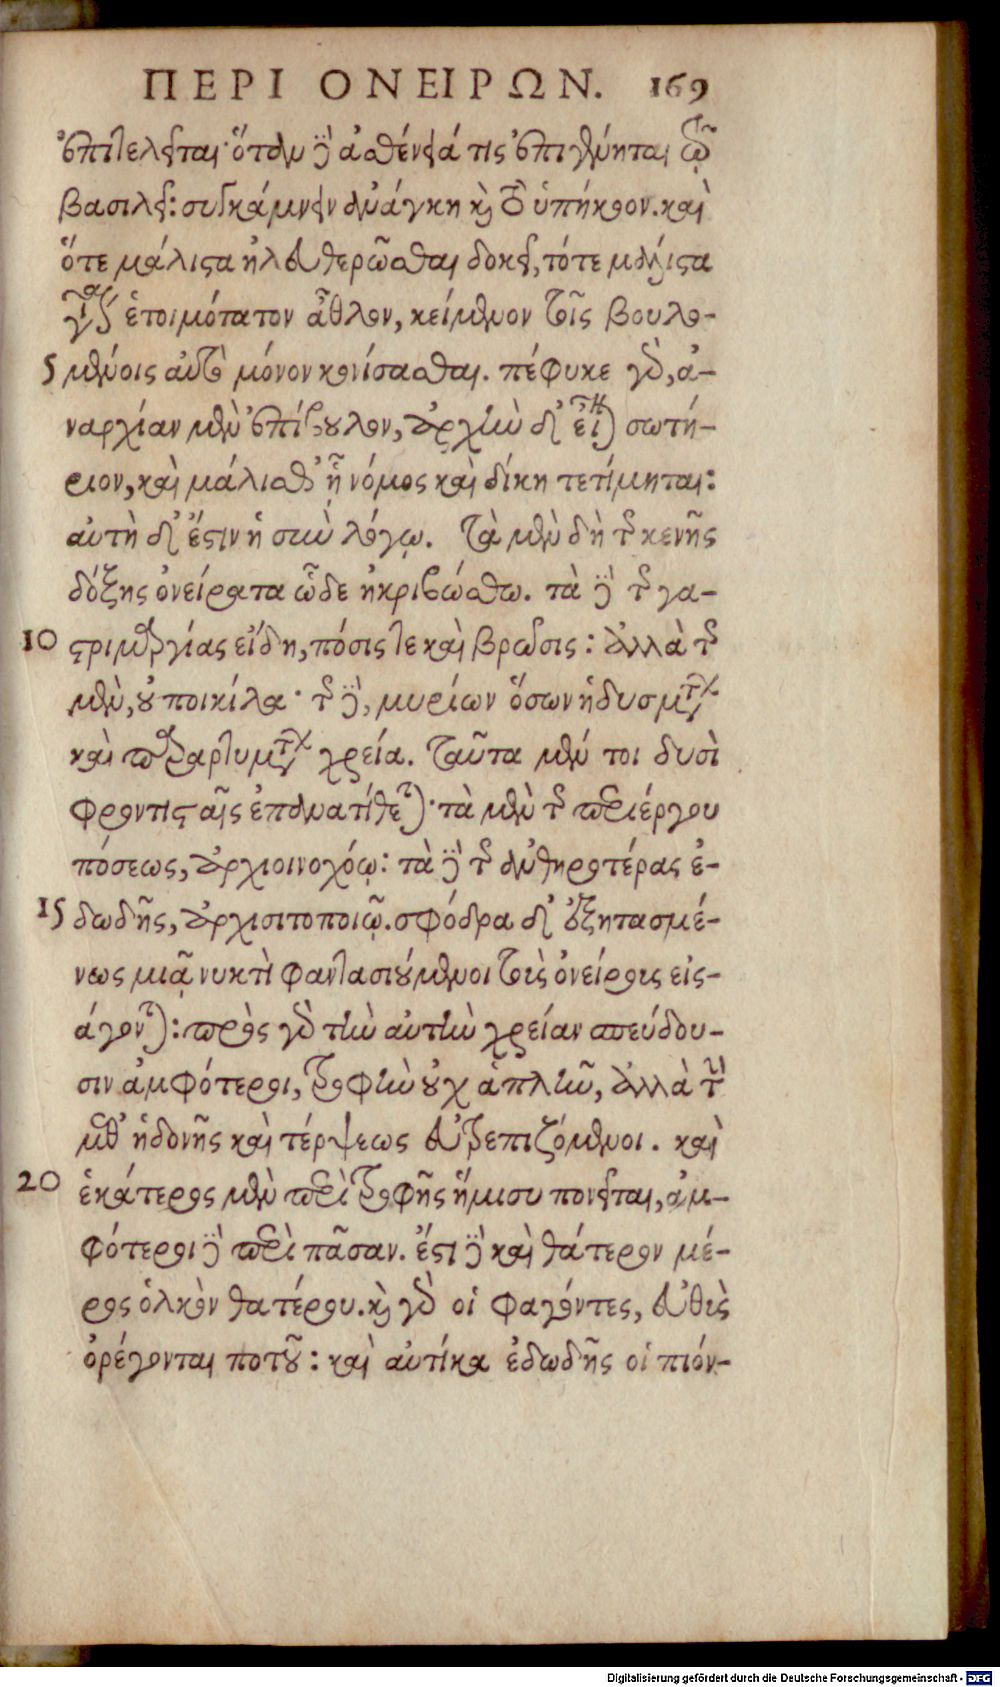 ΠΕΡΙ ΟΝΕΙΡΩΝ. 169
ἐπιτελεῖται· ὅταν δὲ ἀσθένειά τις ἐπιγένηται τῷ
βασιλεῖ: συγκάμνειν ἀνάγκη καὶ τὸ ὑπήκοον. καὶ
ὅτε μάλιστα ἠλευθερῶσθαι δοκεῖ, τότε μάλιστα
ἑτοιμότατον ἆθλον, κείμενον τοῖς βουλο-
5 μένοις αὐτὸ μόνον κονίσασθαι. πέφυκε γὰρ, ἀ-
ναρχίαν μὲν ἐπίβουλον, ἀρχὴν δ' εἶναι σωτή-
ριον, καὶ μάλιστ' ᾗ νόμος καὶ δίκη τετίμηται:
αὐτὴ δ' ἔστιν ἡ σὺν λόγῳ. Τὰ μὲν δὴ τῆς κενῆς
δόξης ὀνείρατα ὧδε ἠκριβώσθω. τὰ δὲ τῆς γα-
10 στριμαργίας εἴδη, πόσις τε καὶ βρῶσις: ἀλλὰ τῆς
μὲν, οὐ ποικίλα· τῆς δὲ, μυρίων ὅσων ἡδυσμάτων
καὶ παραρτυμάτων χρεία. Ταῦτα μέν τοι δυσὶ
φροντισταῖς ἐπανατίθεται· τὰ μὲν τῆς περιέργου
πόσεως, ἀρχιοινοχόῳ: τὰ δὲ τῆς ἀνθηροτέρας ἐ-
15 δωδῆς, ἀρχισιτοποιῷ. σφόδρα δ' ἐξητασμέ-
νως μιᾷ νυκτὶ φαντασιούμενοι τοὺς ὀνείρους εἰς-
άγονται: πρὸς γὰρ τὴν αὐτὴν χρείαν σπεύδου-
σιν ἀμφότεροι, τροφὴν οὐχ ἁπλῆν, ἀλλὰ τὴν
μεθ' ἡδονῆς καὶ τέρψεως εὐτρεπιζόμενοι. καὶ
20 ἑκάτερος μὲν περὶ τροφῆς ἥμισυ πονεῖται, ἀμ-
φότεροι δὲ περὶ πᾶσαν. ἔστι δὲ καὶ θάτερον μέ-
ρος ὁλκὸν θατέρου. καὶ γὰρ οἱ φαγόντες, εὐθὺς
ὀρέγονται ποτοῦ: καὶ αὐτίκα ἐδωδῆς οἱ πιόν-
Digitalisierung gefördert durch die Deutsche Forschungsgemeinschaft - DFG